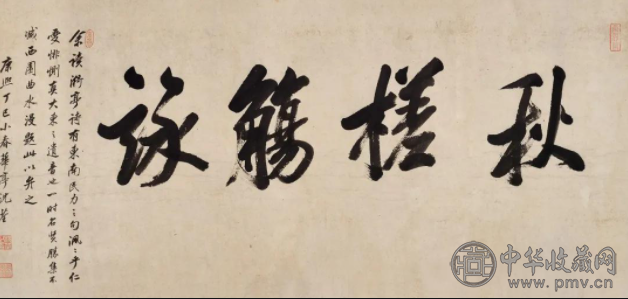 秋槎觴詠
余讀亭詩有東南民力之句渢渢乎仁
愛悱惻真大東之遺音也一時名賢勝集不
減西園曲水漫題此以弁之
康熙丁巳小春華亭沈荃
中华收藏网
www.pmv.cn